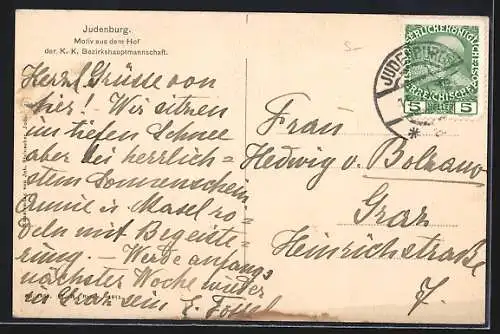 Judenburg.
Motiv aus dem Hof
der K. K. Bezirkshauptmannschaft.
Herzl. Grüsse von
hier! Wir sitzen
im tiefen Schnee
aber bei herrlich=
stem Sonnenschein
Annie u. Masel ro
deln mit Begeiste
rung. – Werde anfangs
nächster Woche wieder
in Graz sein E.
JUDENBURG
5 HELLER 5
Frau
Hedwig v. Bolzano
Graz
Heinrichstraße
7.